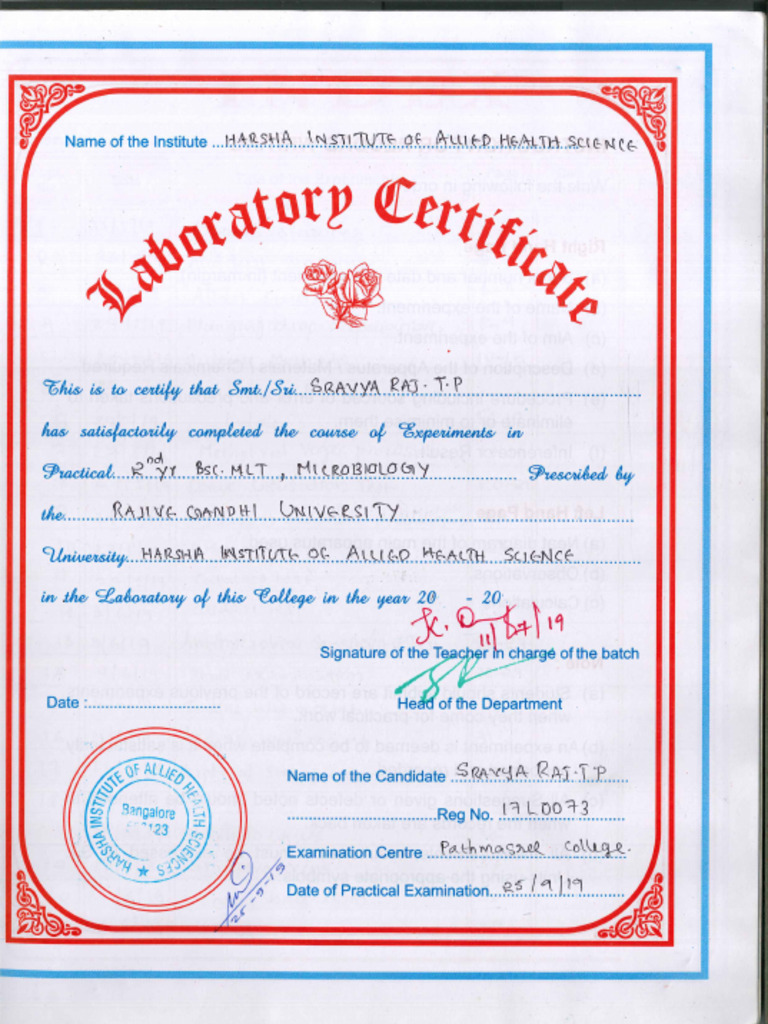 Name of the Institute ...HARSHA INSTITUTE OF ALLIED HEALTH SCIENCE
Laboratory Certificate
This is to certify that Smt./Sri. SRAVYA RAJ. T. P
has satisfactorily completed the course of Experiments in
Practical 2nd yr BSC. MLT , MICROBIOLOGY Prescribed by
the RAJIVE GANDHI UNIVERSITY
University HARSHA INSTITUTE OF ALLIED HEALTH SCIENCE
in the Laboratory of this College in the year 20 - 20
11/07/19
Signature of the Teacher in charge of the batch
Date :
Head of the Department
HARSHA INSTITUTE OF ALLIED HEALTH SCIENCES
Bangalore
Name of the Candidate SRAVYA RAJ. T. P
Reg No. 17L0073
Examination Centre Pathmasree College.
Date of Practical Examination 25/9/19
25-9-19